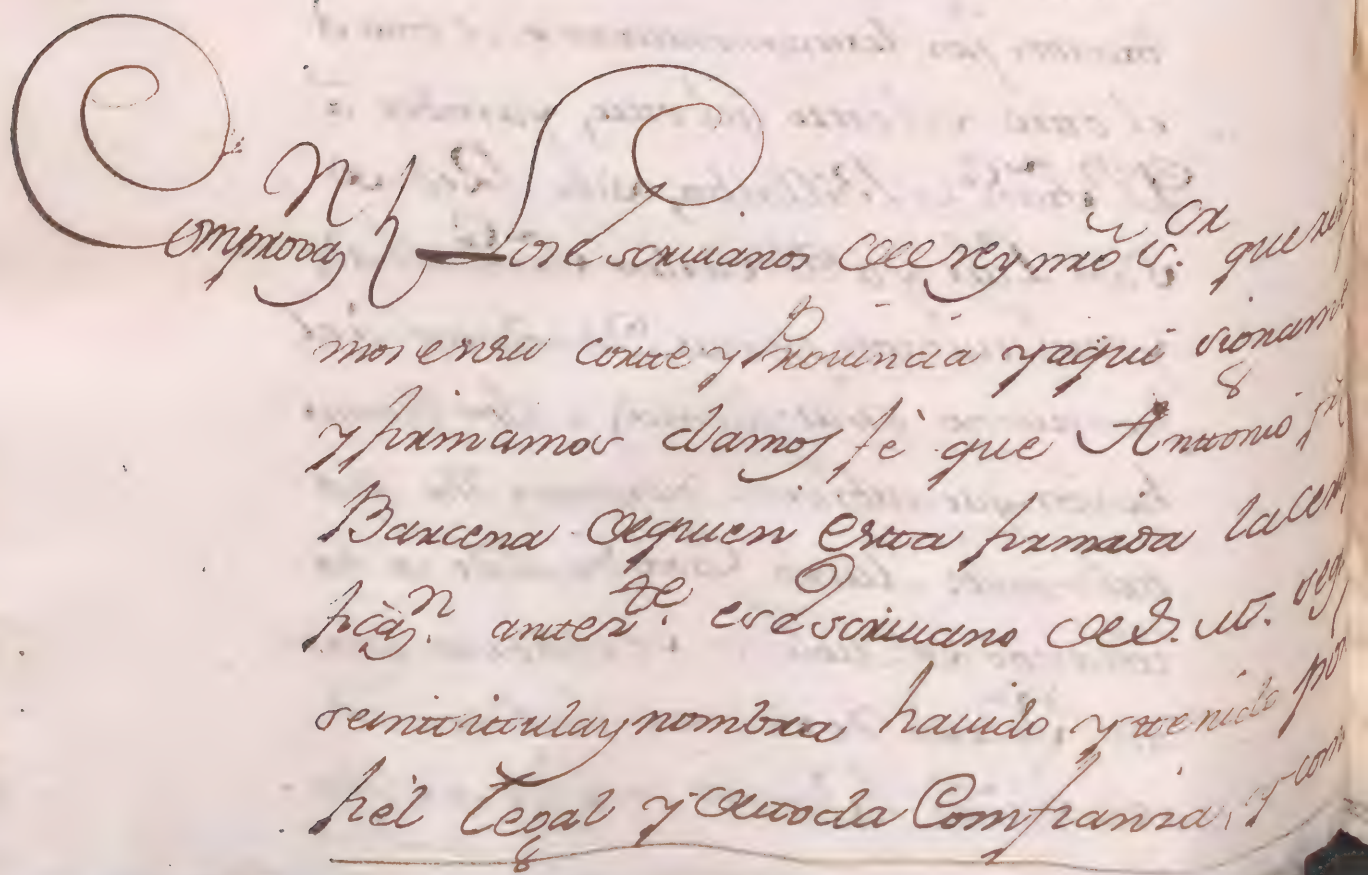 Comprovaz.n Los Escriuanos del rey nro s.or que resi
mos en su corte y Prouincia y aqui signam
y firmamos damos fè que Anttonio
Barcena de quien estta firmada la cer
ficaz.n antter.te es escriuano de S. M. seg
se inttitula y nombra hauido, y ttenido por
fièl Legal y de ttoda Comfianza, y com